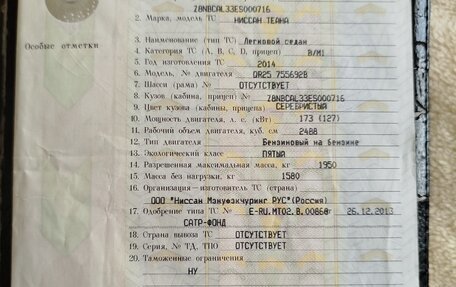 Z8NBCAL33ES000716
2. Марка, модель ТС НИССАН ТЕАНА
Особые отметки
3. Наименование (тип ТС) Легковой седан
4. Категория ТС (А, В, С, D, прицеп) В/М1
5. Год изготовления ТС 2014
6. Модель, № двигателя QR25 755692В
7. Шасси (рама) № ОТСУТСТВУЕТ
8. Кузов (кабина, прицеп) № Z8NBCAL33ES000716
9. Цвет кузова (кабины, прицепа) СЕРЕБРИСТЫЙ
10. Мощность двигателя, л. с. (кВт) 173 (127)
11. Рабочий объем двигателя, куб. см 2488
12. Тип двигателя Бензиновый на бензине
13. Экологический класс ПЯТЫЙ
14. Разрешенная максимальная масса, кг 1950
15. Масса без нагрузки, кг 1580
16. Организация—изготовитель ТС (страна)
ООО "Ниссан Мэнуфэкчуринг РУС"(Россия)
17. Одобрение типа ТС № E-RU.MT02.B.00868 от 26.12.2013
САТР-ФОНД
18. Страна вывоза ТС ОТСУТСТВУЕТ
19. Серия, № ТД, ТПО ОТСУТСТВУЕТ
20. Таможенные ограничения
НУ